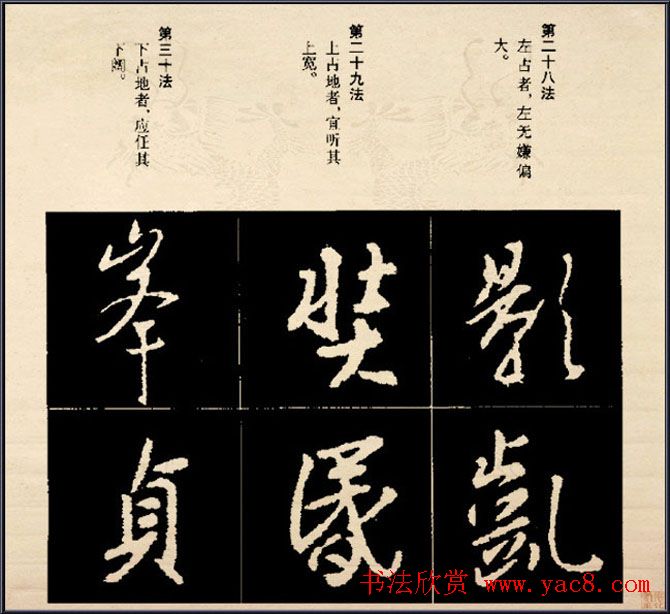 第二十八法
左占者，左无嫌偏
大。
第二十九法
上占地者，宜听其
上宽。
第三十法
下占地者，应任其
下阔。
影
凱
奘
峯
貞
书法欣赏 www.yac8.com